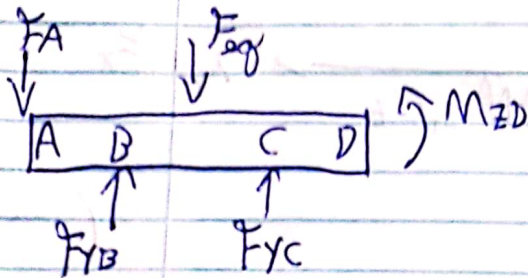 FA Feq
A B C D MZD
FYB FYC